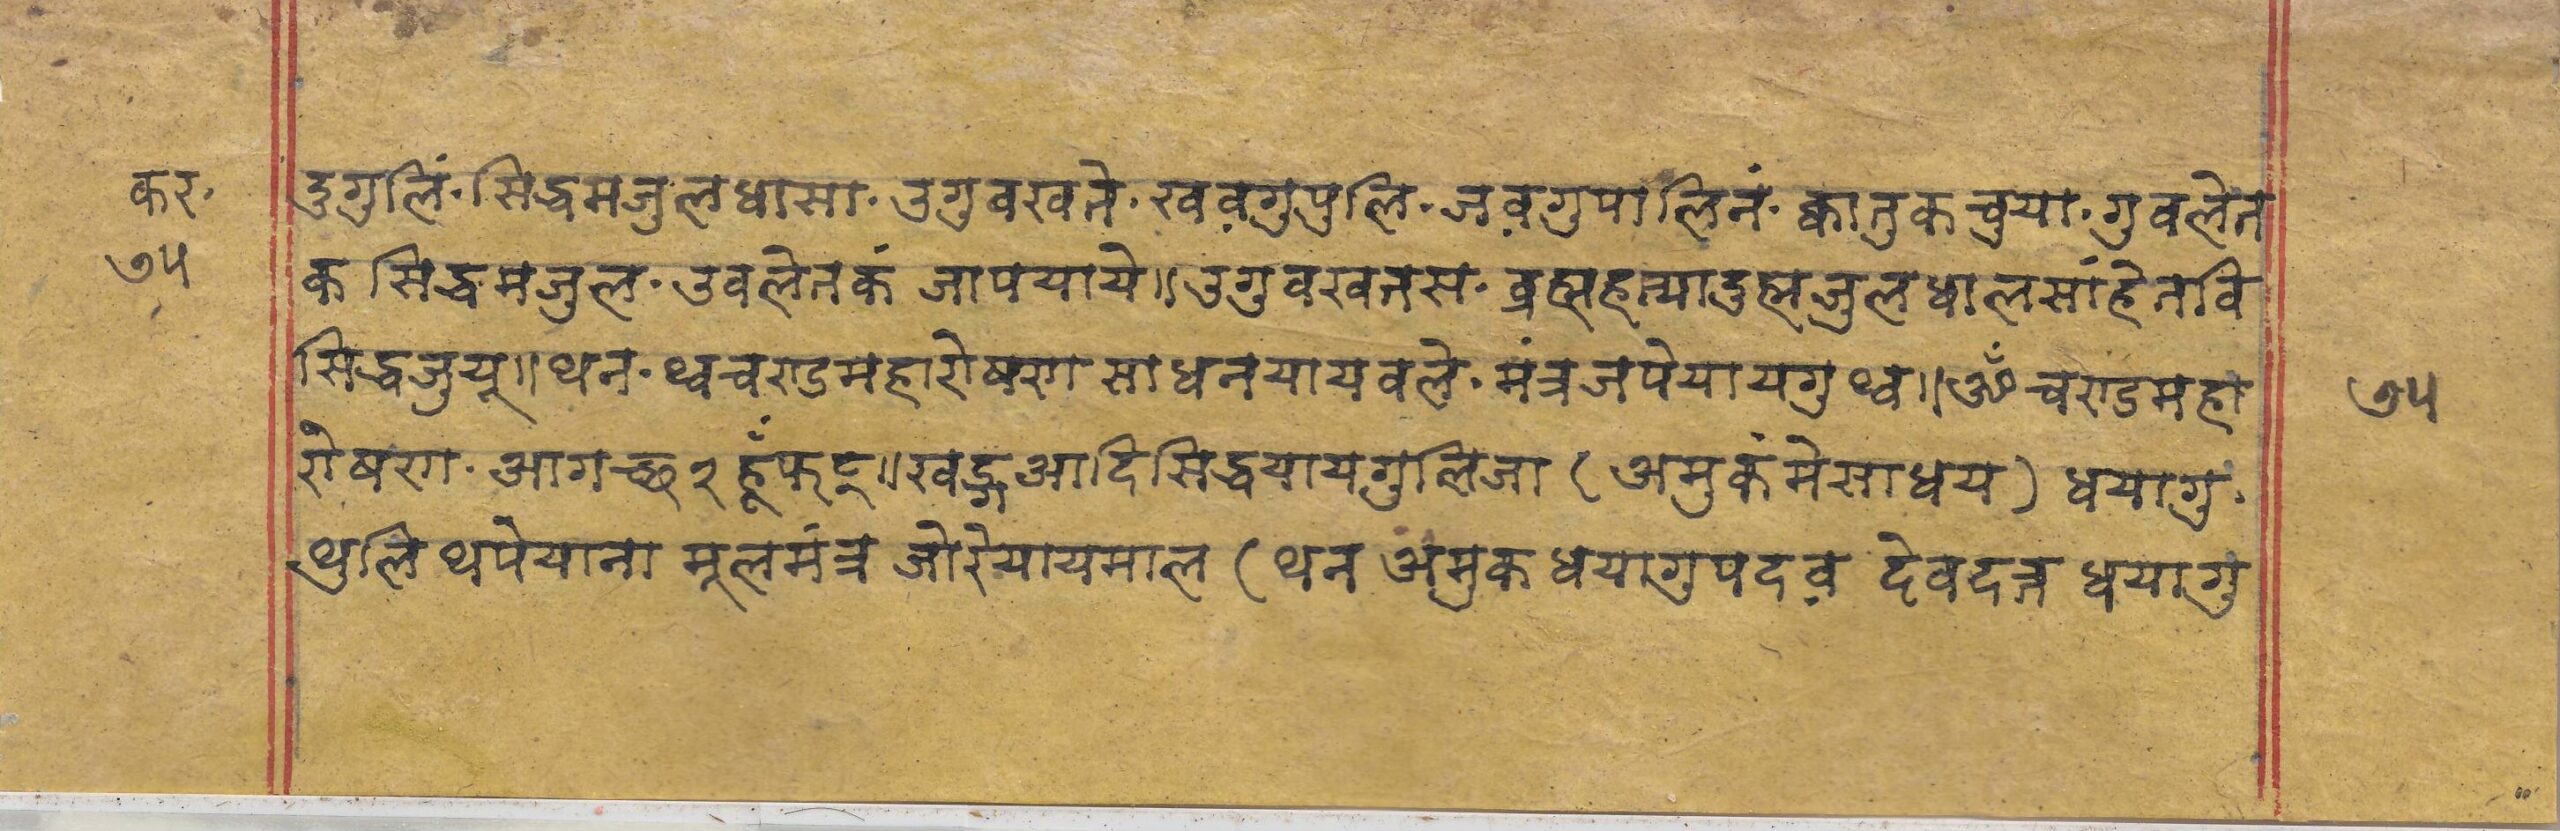 कर. दुगुलिं. सिद्धमजुलधासा. उगुवखने. खव़गुपुलि. जव़गुपालिनं. क्वातुकचुया. गुवलेत
७५ क सिद्धमजुल. उवलेतकं जापयाये॥ उगुवखनस. ब्रह्महत्यादुह्मजुलधालसांहेनवि
सिद्धजुयू॥ थन. थ्वचण्डमहारोषण साधनयायवले. मंत्रजपेयायगुथ्व॥ ॐ चण्डमहा ७५
रोषण. आगच्छ२ हूँफट्॥ खड्गआदिसिद्धयायगुलिजा (अमुकंमेसाधय) धयागु.
थुलि थपेयाना मूलमंत्र जोरेयायमाल (थन अमुक धयागुपदव़ देवदत्त धयागु